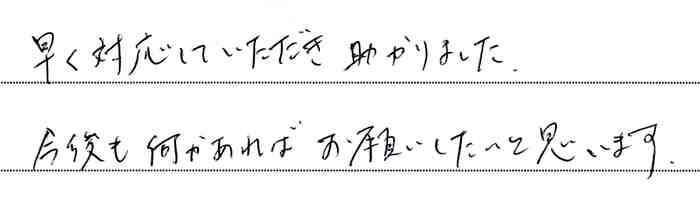 早く対応していただき助かりました.
今後も何かあればお願いしたいと思います.